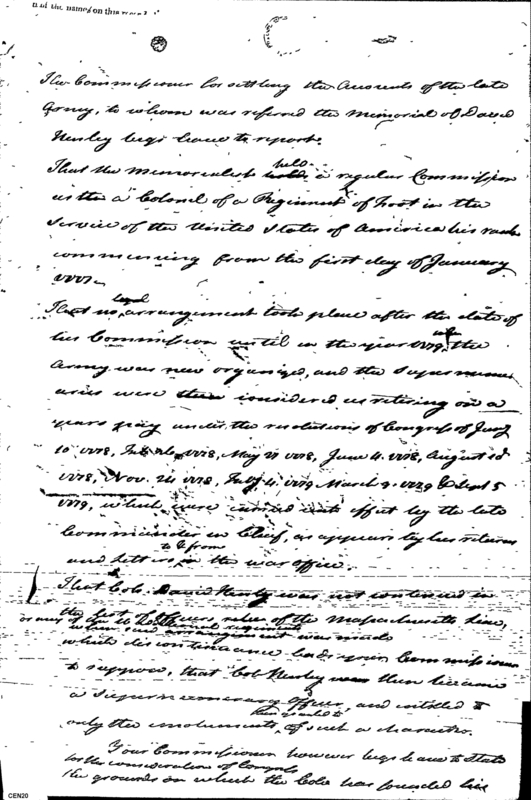 the names on this
The Commissioner for settling the Accounts of the late
Army, to whom was referred the Memorial of David
Henley begs leave to report.
That the Memorialist held a regular Commission
as the a Colonel of a Regiment of Foot in the
Service of the United States of America his rank
commencing from the first day of January
1777.
That no legal arrangement took place after the date of
his Commission until in the year 1779, when the
Army was new organized, and the Supernumer
aries were then considered as retiring on a
years pay under the resolutions of Congress of Jany
10 1778, 1778, May 1778, June 4. 1778, August
1778, Nov. 24 1778, July 4. 1779 March 1779 & Sept 5
1779, which were carried into effect by the late
Commander in Chief, as appears by his returns
and letters to & from in the war office.
That Colo. David Henley was not continued in
the list of Officers of the Massachusetts line,
or any of the 16 additional regiments
when said arrangement was made
which discontinuance leads your Commissioner
to suppose, that Colo Henley was then became
a Supernumerary Officer, and entitled to
only the emoluments of such a character.
Your Commissioner however begs leave to State
for the consideration of Congress
the grounds on which the Colo has founded his
CEN20